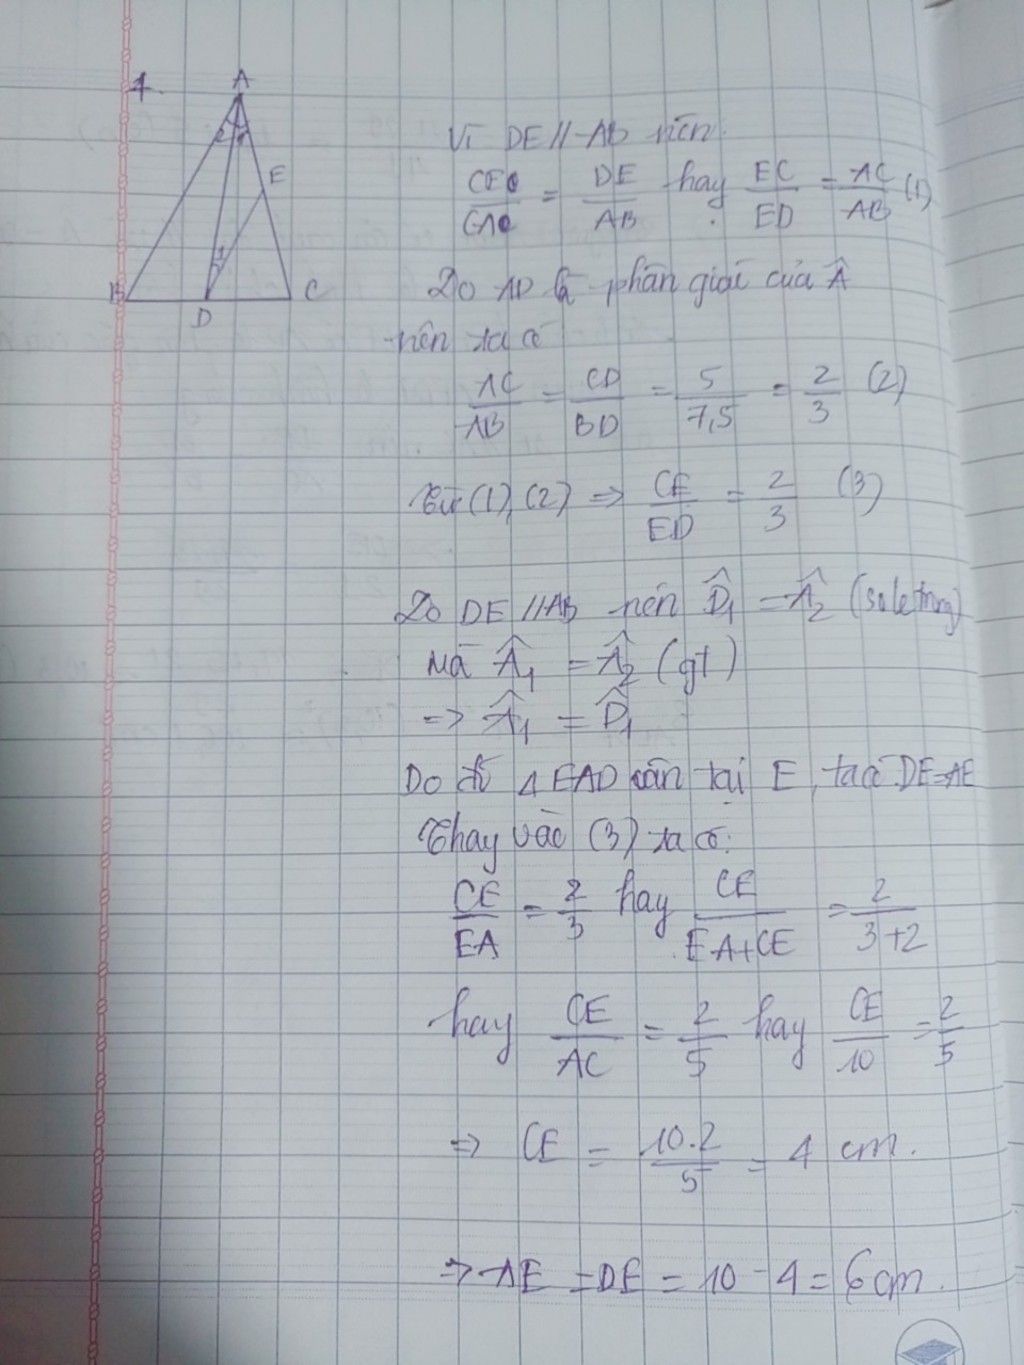 4.
A
E
B
D
C
1
Vì DE // AB nên
CE/CA = DE/AB hay EC/ED = AC/AB (1)
Do AD là phân giái của Â
nên ta có
AC/AB = CD/BD = 5/7,5 = 2/3 (2)
Từ (1), (2) => CE/ED = 2/3 (3)
Do DE // AB nên D̂1 = Â2 (so le trong)
Mà Â1 = Â2 (gt)
=> Â1 = D̂1
Do đó Δ EAD cân tại E, ta có DE = AE
Thay vào (3) ta có:
CE/EA = 2/3 hay CE/EA+CE = 2/3+2
hay CE/AC = 2/5 hay CE/10 = 2/5
=> CE = 10.2/5 = 4 cm.
=> AE = DE = 10 - 4 = 6 cm.